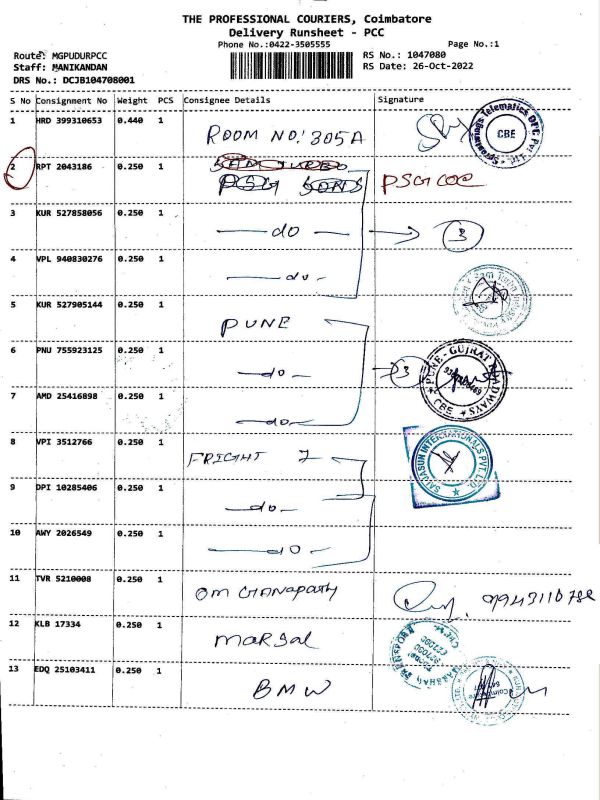 THE PROFESSIONAL COURIERS, Coimbatore
Delivery Runsheet - PCC
Phone No.:0422-3505555 Page No.:1
Route: MGPUDURPCC RS No.: 1047080
Staff: MANIKANDAN RS Date: 26-Oct-2022
DRS No.: DCJB104708001
S No Consignment No Weight PCS Consignee Details Signature
1 HRD 399310653 0.440 1 ROOM NO: 305A
CBE
2 RPT 2043186 0.250 1 PSG CBE
3 KUR 527858056 0.250 1 -do- 3
4 VPL 940830276 0.250 1 -do-
5 KUR 527905144 0.250 1 PUNE
6 PNU 755923125 0.250 1 -do- 3
PUNE - GUJRAT ROADWAYS
CBE
7 AMD 25416898 0.250 1 -do-
8 VPI 3512766 0.250 1 FRIGHT
SAIJASUN INTERNATIONALS PVT. LTD.
9 DPI 10285406 0.250 1 -do-
10 AWY 2026549 0.250 1 -do-
11 TVR 5210008 0.250 1 OM GANAPATHY
12 KLB 17334 0.250 1
13 EDQ 25103411 0.250 1 BMW